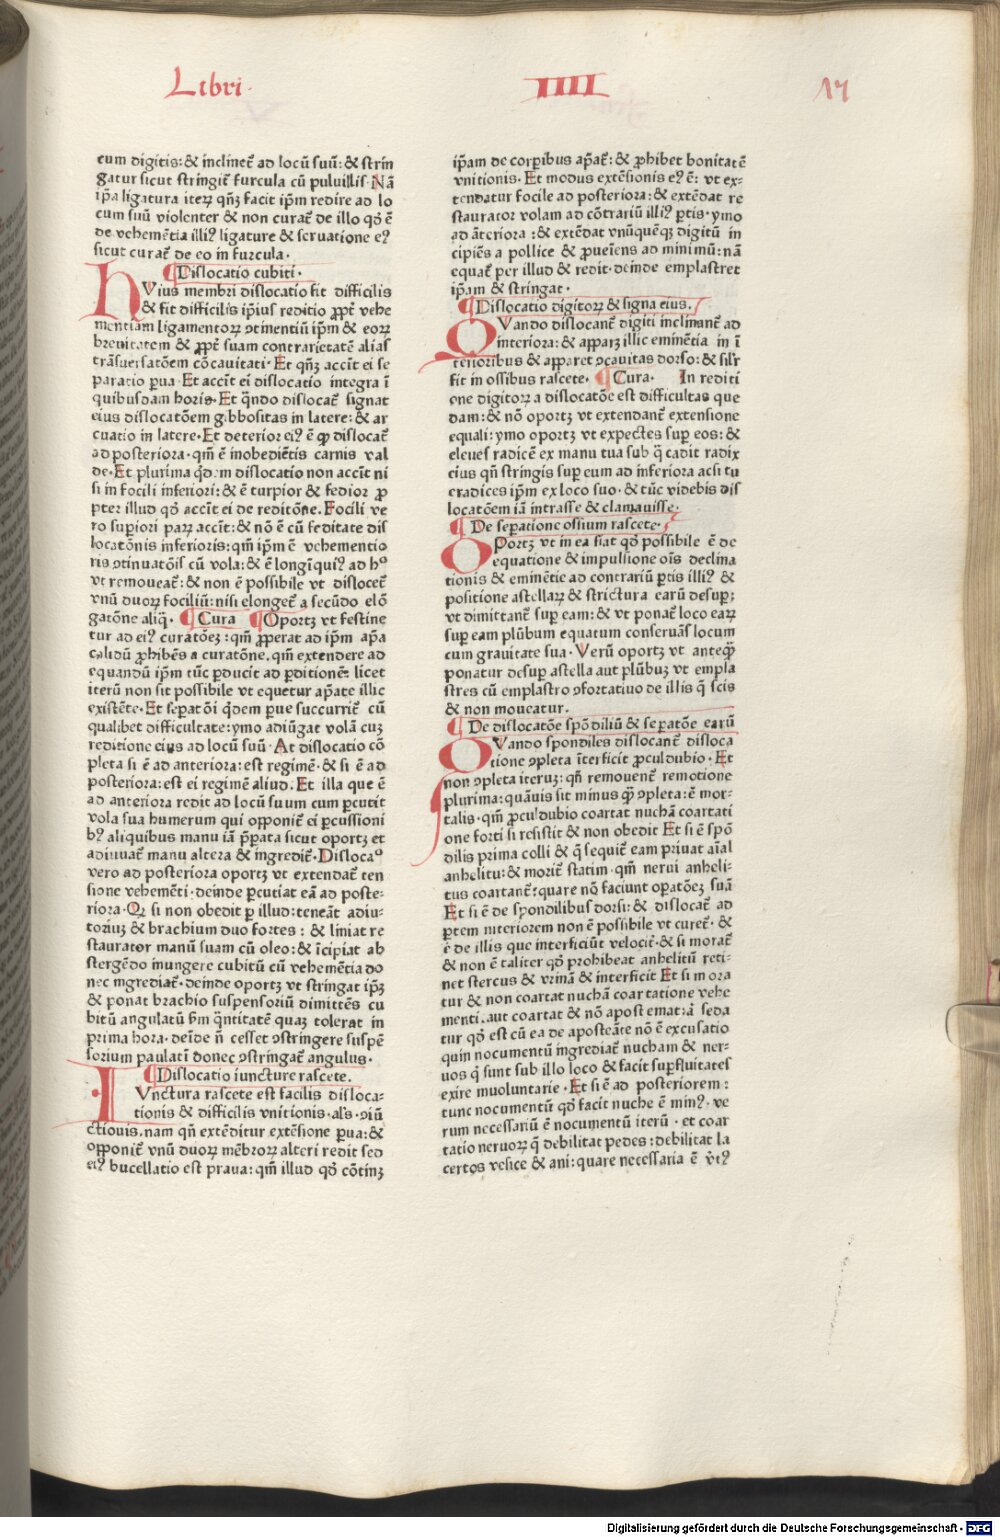 Libri
IIII
17
eum digitis: & inclinet᷑ ad locū suū: & strin
gatur sicut stringit᷑ furcula cū puluillis. Nā
ip̄a ligatura iteꝝ qn̄ꝫ facit ip̄m redire ad lo
cum suū violenter & non curat᷑ de illo qd̓ ē
de vehemētia illiꝰ ligature & seruatione eꝰ
sicut curat᷑ de eo in furcula.
¶ Dislocatio cubiti.
HVius membri dislocatio fit difficilis
& fit difficilis ip̄ius reditio ꝓpt᷑ vehe
mentiam ligamentoꝝ ꝯtinentiū ip̄m & eoꝝ
breuitatem & ꝓpt᷑ suam contrarietatē alias
trāsuersatōem cōcauitati. Et qn̄ꝫ accit᷑ ei se
paratio ꝑua. Et accit᷑ ei dislocatio integra ī
quibusdam horis. Et qn̄do dislocat᷑ signat
eius dislocatōem gibbositas in latere: & ar
cuatio in latere. Et deterior eiꝰ ē ꝙ dislocat᷑
ad posteriora. qm̄ ē inobediētis carnis val
de. Et plurima qd̓em dislocatio non accit᷑ ni
si in focili inferiori: & ē turpior & fedior ꝓ
pter illud qd̓ accit᷑ ei de reditōne. Focili ve
ro suꝑiori paꝝ accit᷑: & nō ē cū feditate dis
locatōnis inferioris: qm̄ ip̄m ē vehementio
ris ꝯtinuatōis cū vola: & ē longīquiꝰ ad hͦ
vt remoueat᷑: & non ē possibile vt dislocet᷑
vnū duoꝝ focilliū: nisi elonget᷑ a secūdo elō
gatōne aliq̄. ¶ Cura ¶ Oportꝫ vt festine
tur ad eiꝰ curatōeꝫ: qm̄ ꝓꝑat ad ip̄m ap̄a
calidū ꝓhibēs a curatōne. qm̄ extendere ad
equandū ip̄m tūc ꝑducit ad ꝑditionē: licet
iterū non sit possibile vt equetur ap̄ate illic
existēte. Et seꝑatōi qd̓em ꝑue succurrit᷑ cū
qualibet difficultate: ymo adiūgat volā cuꝫ
reditione eius ad locū suū. At dislocatio cō
pleta si ē ad anteriora: est regimē. & si ē ad
posteriora: est ei regimē aliud. Et illa que ē
ad anteriora redit ad locū suum cum ꝑcutit
vola sua humerum qui opponit᷑ ei ꝑcussioni
bꝰ aliquibus manu iā p̄ꝑata sicut oportꝫ et
adiuuat᷑ manu altera & ingredit᷑. Dislocaͦ
vero ad posteriora oportꝫ vt extendat᷑ ten
sione vehemēti. deinde ꝑcutiat eā ad poste⸗
riora. Qꝫ si non obedit ꝑ illud: teneāt adiu⸗
toriuꝫ & brachium duo fortes: & liniat re
staurator manū suam cū oleo: & īcipiat ab
stergēdo inungere cubitū cū vehemētia do
nec ingrediat᷑. deinde oportꝫ vt stringat ip̄ꝫ
& ponat brachio suspensoriū dimittēs cu
bitū angulatū ẜm qn̄titatē quaꝫ tolerat in
prima hora. deīde n̄ cesset ꝯstringere suspē
sorium paulatī donec ꝯstringat᷑ angulus.
¶ Dislocatio iuncture rascete.
IVnctura rascete est facilis disloca⸗
tionis & difficilis vnitionis. al's. ꝯiū
ctionis. nam qn̄ extēditur extēsione ꝑua: &
opponit᷑ vnū duoꝝ mēbroꝝ alteri redit sed
eiꝰ bucellatio est praua: qm̄ illud qd̓ cōtinꝫ
ip̄am de corꝑibus ap̄at᷑: & ꝓhibet bonitatē
vnitionis. Et modus extēsionis eꝰ ē: vt ex⸗
tendatur focile ad posteriora: & extēdat re
staurator volam ad cōtrariū illiꝰ ꝑtis. ymo
ad āteriora: & extēdat vnūquēqꝫ digitū in
cipiēs a pollice & ꝓueīens ad minimū: nā
equat᷑ per illud & redit. deinde emplastret
ip̄am & stringat.
¶ Dislocatio digitoꝝ & signa eius.
QVando dislocant᷑ digiti inclinant᷑ ad
interiora: & apparꝫ illic eminētia in ī
terioribus & apparet ꝯcauitas dorso: & sil'r
fit in ossibus rascete. ¶ Cura. In rediti
one digitoꝝ a dislocatōe est difficultas que
dam: & nō oportꝫ vt extendant᷑ extensione
equali: ymo oportꝫ vt expectes suꝑ eos: &
eleues radicē ex manu tua sub q̄ cadit radix
eius qn̄ stringis suꝑ eum ad inferiora acsi tu
eradices ip̄m ex loco suo. & tūc videbis dis
locatōem iā intrasse & clamauisse.
¶ De seꝑatione ossium rascete.
OPortꝫ vt in ea fiat qd̓ possibile ē de
equatione & impulsione oīs declina
tionis & eminētie ad contrariū ꝑtis illiꝰ &
positione astellaꝝ & strictura earū desuꝑ;
vt dimittant᷑ suꝑ eam: & vt ponat᷑ loco eaꝝ
suꝑ eam plūbum equatum conseruās locum
cum grauitate sua. Verū oportꝫ vt anteqꝫ̄
ponatur desuꝑ astella aut plūbuꝫ vt empla
stres cū emplastro ꝯfortatiuo de illis q̄ scis
& non moueatur.
¶ De dislocatōe spōdiliū & seꝑatōe earū
QVando spondiles dislocant᷑ disloca
tione ꝯpleta īterficit ꝓculdubio. Et
non ꝯpleta iteruꝫ: qn̄ remouent᷑ remotione
plurima: quāuis sit minus qꝫ̄ ꝯpleta: ē mor⸗
talis. qm̄ ꝓculdubio coartat nuchā coartati
one forti si resistit & non obedit Et si ē spō
dilis prima colli & q̄ sequit᷑ eam priuat aīal
anhelitu: & morit᷑ statim. qm̄ nerui anheli⸗
tus coartant᷑: quare nō faciunt oꝑatōeꝫ suā
Et si ē de spondilibus dorsi: & dislocat᷑ ad
ꝑtem interiorem non ē possibile vt curet᷑. &
ē de illis que interficiūt velocit᷑. & si morat᷑
& non ē taliter qd̓ prohibeat anhelitū reti⸗
net stercus & vrinā & interficit Et si mora
tur & non coartat nuchā coartatione vehe
menti. aut coartat & nō apostemat: a᷑ seda
tur qd̓ est cū ea de aposteāte nō ē excusatio
quin nocumentū ingrediat᷑ nucham & ner⸗
uos q̄ sunt sub illo loco & facit suꝑfluitates
exire inuoluntarie. Et si ē ad posteriorem:
tunc nocumentū qd̓ facit nuche ē minꝰ. ve
rum necessariū ē nocumentū iterū. et coar
tatio neruoꝝ q̄ debilitat pedes: debilitat la
certos vesice & ani: quare necessaria ē v̓tꝰ
Digitalisierung gefördert durch die Deutsche Forschungsgemeinschaft - DFG